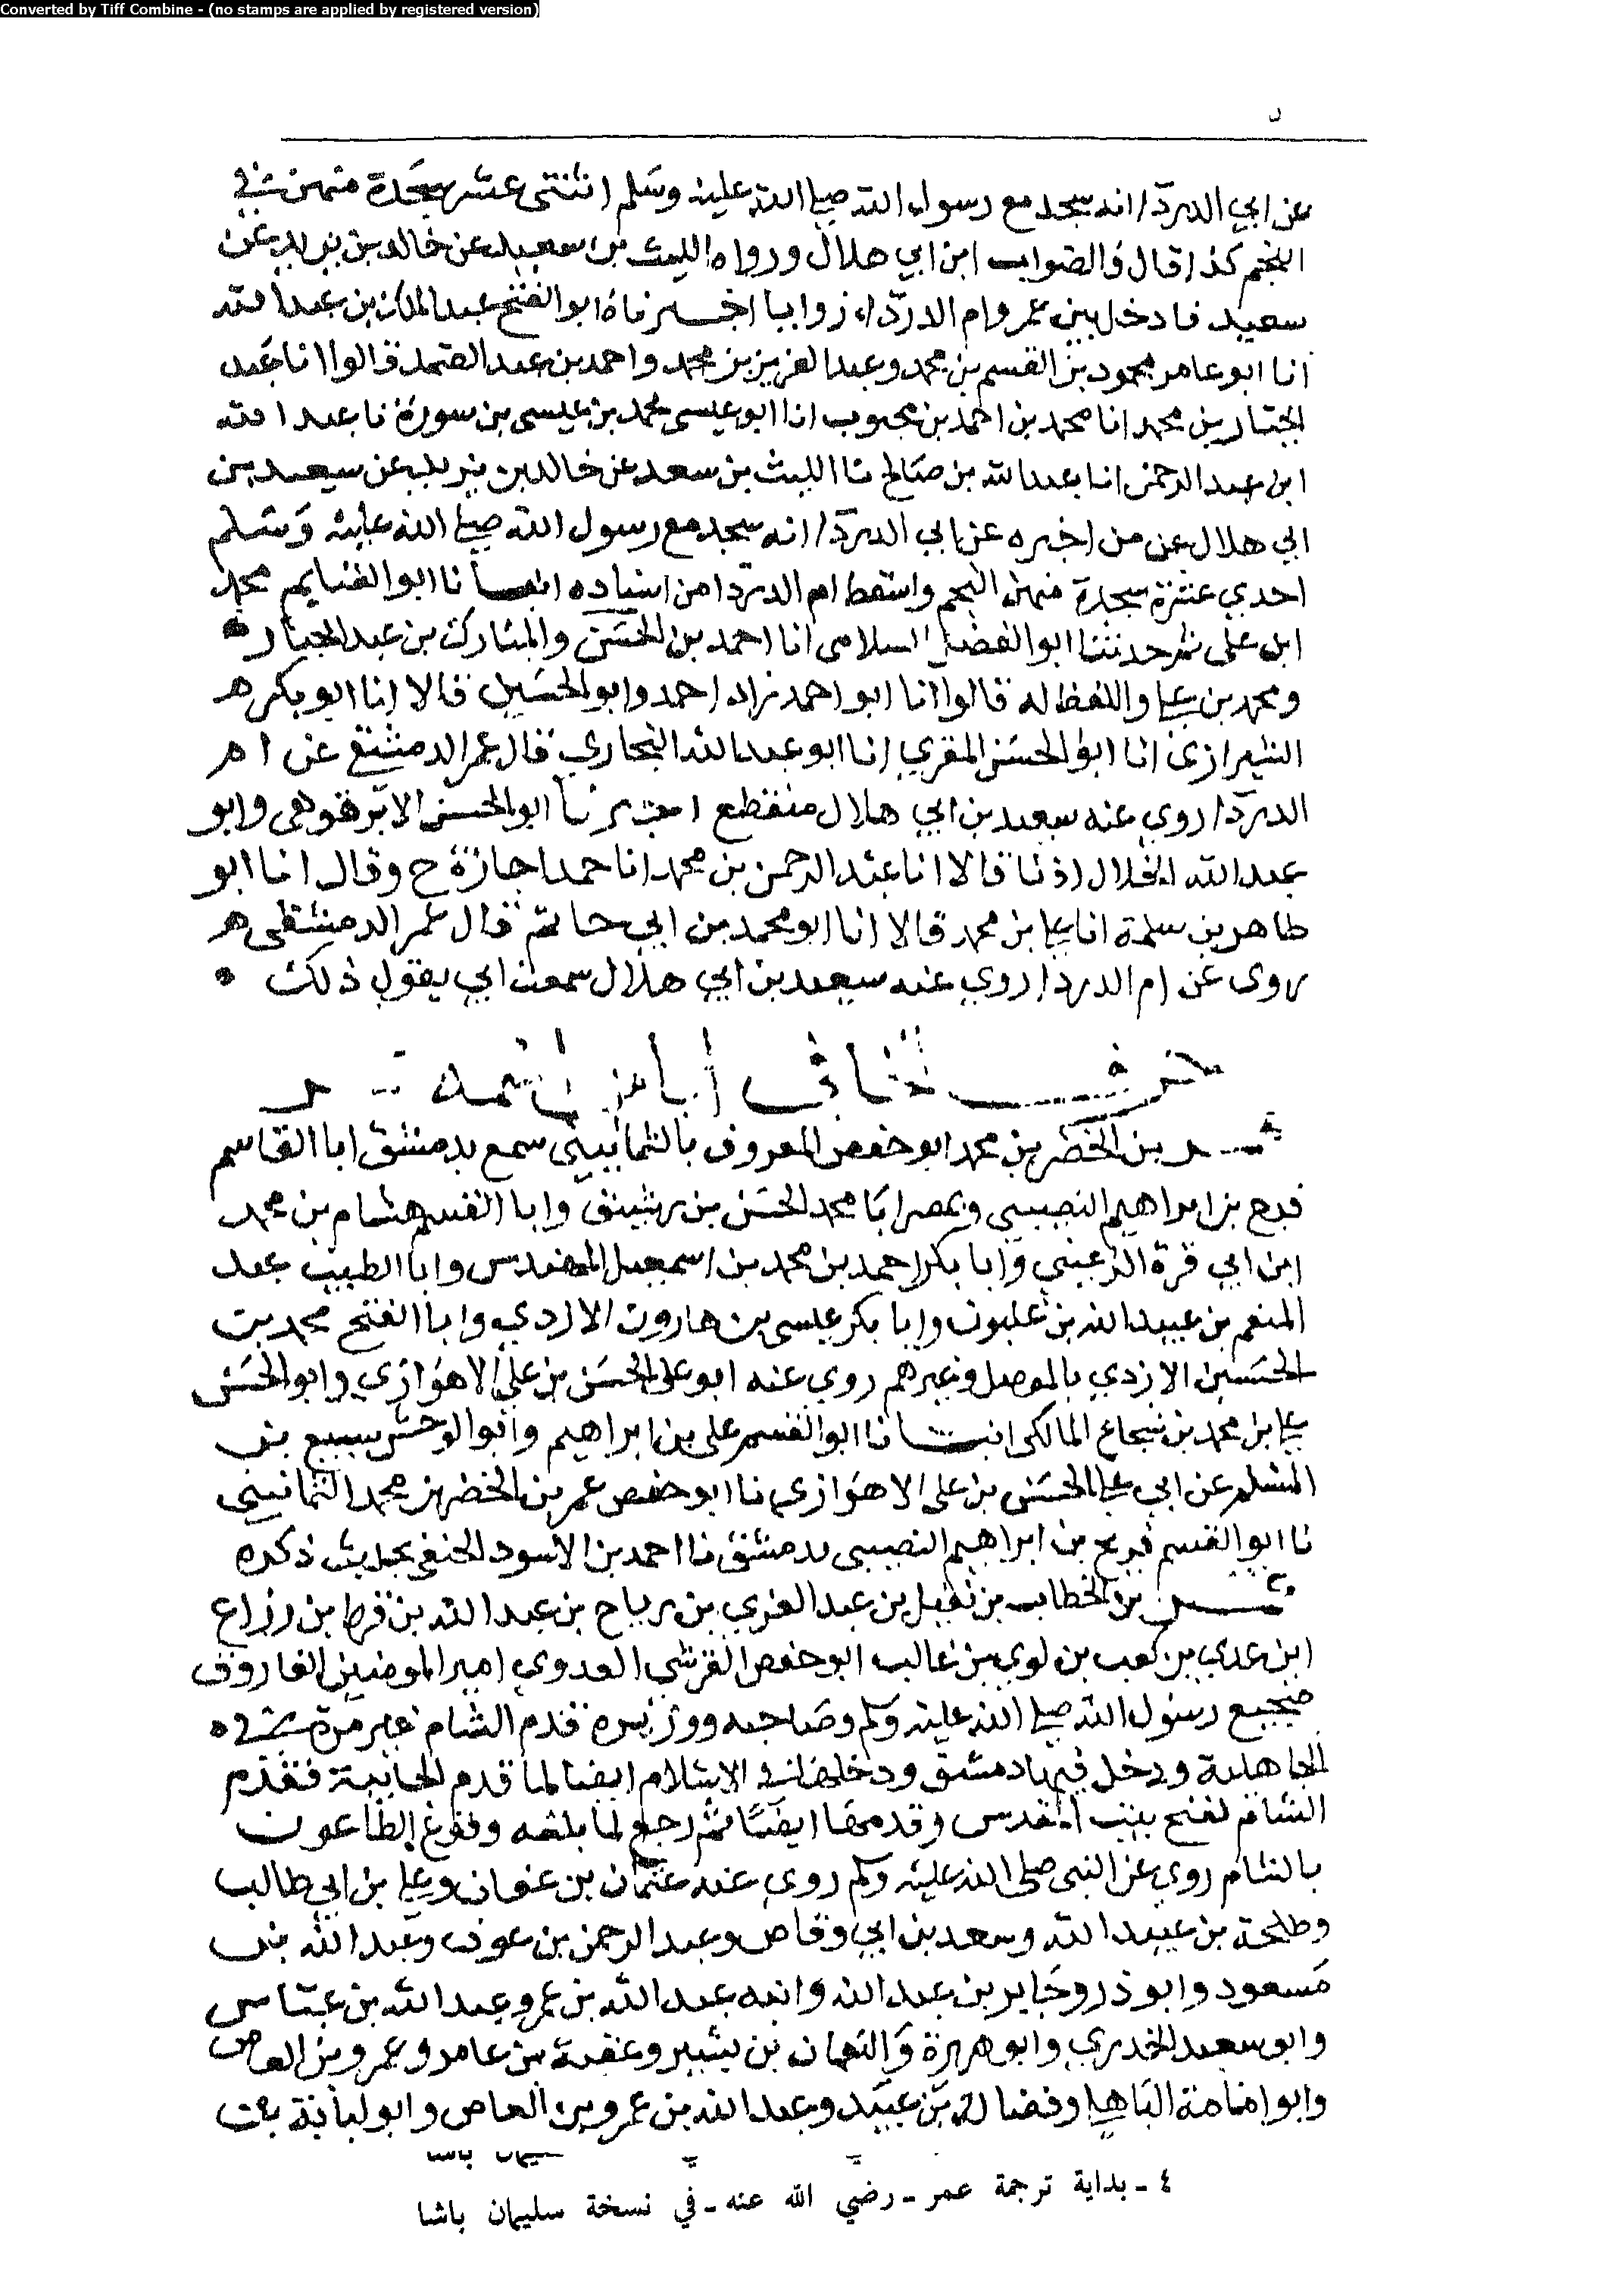 Converted by Tiff Combine - (no stamps are applied by registered version)
عن ابي الدرداء انه سجد مع رسول الله صلى الله عليه وسلم اثنتى عشر سجدة منهن في
النجم كذا قال والصواب ابن ابي هلال ورواه الليث بن سعيد عن خالد بن يزيد عن
سعيد فادخل بين عمر وام الدرداء زوايا اخبرناه ابو الفتح عبد الملك بن عبد الله
انا ابو عامر محمود بن القسم بن محمد وعبد العزيز بن محمد واحمد بن عبد الصمد قالوا انا عبد
الجبار بن محمد انا محمد بن احمد بن محبوب انا ابو عيسى محمد بن عيسى بن سورة نا عبد الله
ابن عبد الرحمن انا عبد الله بن صالح نا الليث بن سعد عن خالد بن يزيد عن سعيد بن
ابي هلال عن من اخبره عن ابي الدرداء انه سجد مع رسول الله صلى الله عليه وسلم
احدي عشرة سجدة منهن النجم واسقط ام الدردا من اسناده انبأنا ابو الغنايم محمد
ابن على ثم حدثنا ابو الفضل السلامى انا احمد بن الحسن والمبارك بن عبد الجبار
ومحمد بن علي واللفظ له قالوا انا ابو احمد زاد احمد وابو الحسين قالا انا ابو بكر
الشيرازى انا ابو الحسن المقري انا ابو عبد الله البخاري قال عمر الدمشقي عن ام
الدرداء روي عنه سعيد بن ابي هلال منقطع اخبرنا ابو الحسن الابرقوهى وابو
عبد الله الخلال اذنا قالا انا عبد الرحمن بن محمد انا حمد اجازة ح وقال انا ابو
طاهر بن سلمة انا علي بن محمد قالا انا ابو محمد بن ابي حاتم قال عمر الدمشقى
روى عن ام الدردا روي عنه سعيد بن ابي هلال سمعت ابي يقول ذلك
حرف
عمر بن الخضر بن محمد ابو حفص المعروف بالثمانيني سمع بدمشق ابا القاسم
فرج بن ابراهيم النصيبي وبمصر ابا محمد الحسن بن رشيق وابا القسم هشام بن محمد
ابن ابي قرة الرعيني وابا بكر احمد بن محمد بن اسمعيل المهندس وابا الطيب عبد
المنعم بن عبيد الله بن غلبون وابا بكر عيسى بن هارون الازدي وابا الفتح محمد بن
الحسين الازدي بالموصل وغيرهم روي عنه ابو على الحسن بن علي الاهوازي وابو الحسن
علي بن محمد بن شجاع المالكى انبأنا ابو القسم على بن ابراهيم وابو الوحش سبيع بن
المسلم عن ابي علي الحسن بن على الاهوازى نا ابو حفص عمر بن الخضر بن محمد الثمانيني
نا ابو القسم فرج بن ابراهيم النصيبى بدمشق نا احمد بن الاسود الحنفي بحديث ذكره
عمر بن الخطاب بن نفيل بن عبد العزي بن رياح بن عبد الله بن قرط بن رزاع
ابن عدي بن كعب بن لوي بن غالب ابو حفص القرشي العدوي امير المومنين الفاروق
ضجيع رسول الله صلي الله عليه وسلم وصاحبه ووزيره قدم الشام غير مرة في
الجاهلية ودخل فيها دمشق ودخلها في الاسلام ايضا لما قدم الجابية فقدم
الشام لفتح بيت المقدس وقدمها ايضًا ثم رجع لما بلغه وقوع الطاعون
بالشام روي عن النبى صلى الله عليه وسلم روي عنه عثمان بن عفان وعلي بن ابي طالب
وطلحة بن عبيد الله وسعد بن ابي وقاص وعبد الرحمن بن عوف وعبد الله بن
مسعود وابو ذر وجابر بن عبد الله وابنه عبد الله بن عمر وعبد الله بن عباس
وابو سعيد الخدري وابو هريرة والنعمان بن بشير وعقبة بن عامر وعمرو بن العاص
وابو امامة الباهلي وفضالة بن عبيد وعبد الله بن عمرو بن العاص وابو لبابة بن
٤ - بداية ترجمة عمر - رضي الله عنه - في نسخة سليمان باشا